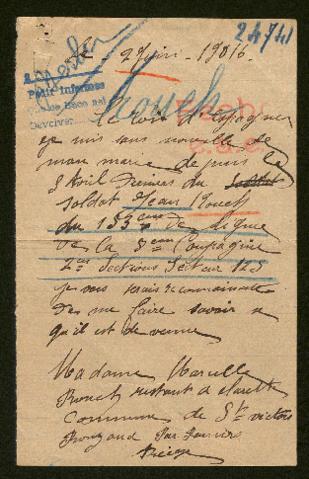 24741
le 2 Juin 1916
Petit Informes
Rouch
le Roi d'Espagne
je suis sans nouvelle de
mon marie depuis
8 Avril Dernier du
soldat Jean Rouch
du 153eme de Ligne
de la 8eme Compagnie
2me Section Secteur 125
je vous serais reconnaissante
de me faire savoir
qu'il est devenu
Madame Marcelle
Rouch restant a
Commune de St victor
Rouzaud Par Pamiers
Ariège